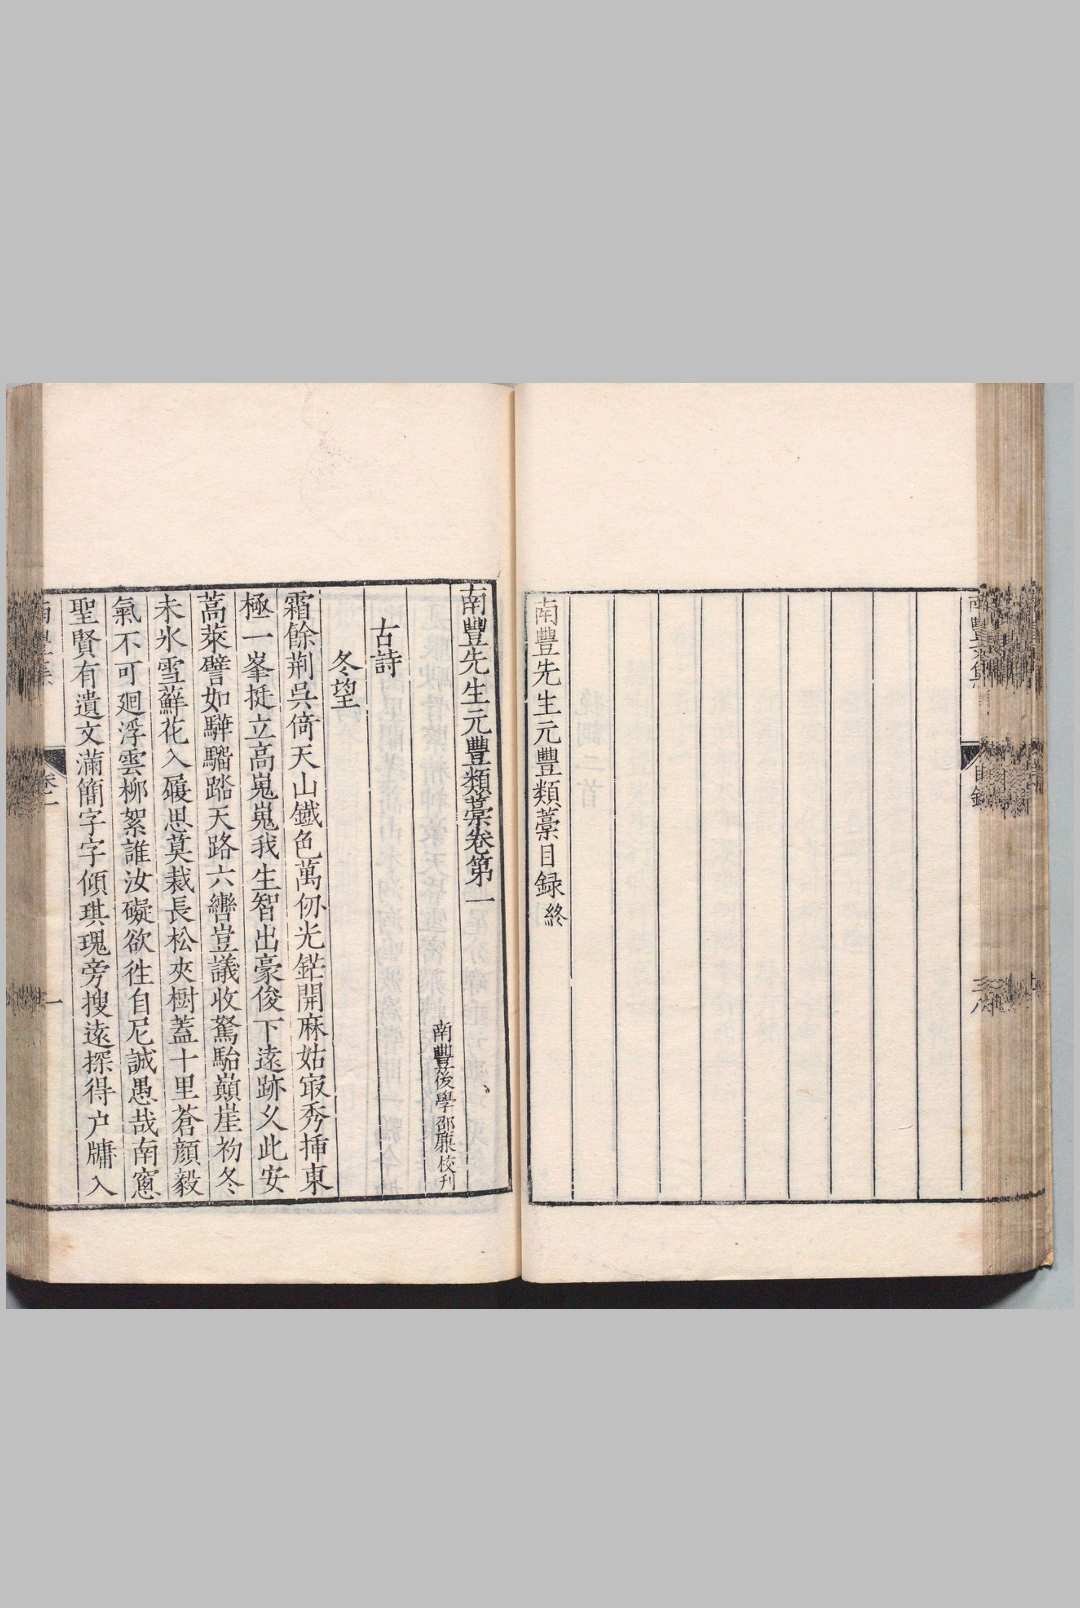 南豐先生元豐類藁目録終
南豐先生元豐類藁卷第一
南豐後學邵廉校刊
古詩
冬望
霜餘荆吳倚天山鐵色萬仞光鋩開麻姑㝡秀揷東
極一峯挺立高嵬嵬我生智出豪俊下遠跡乆此安
蒿萊譬如驊騮踏天路六轡豈議收驚駘巔崖初冬
未氷雪蘚花入履思莫裁長松夾樹蓋十里蒼顔毅
氣不可廻浮雲柳絮誰汝礙欲徃自尼誠愚哉南窻
聖賢有遺文滿簡字字傾琪瑰旁搜遠探得户牖入